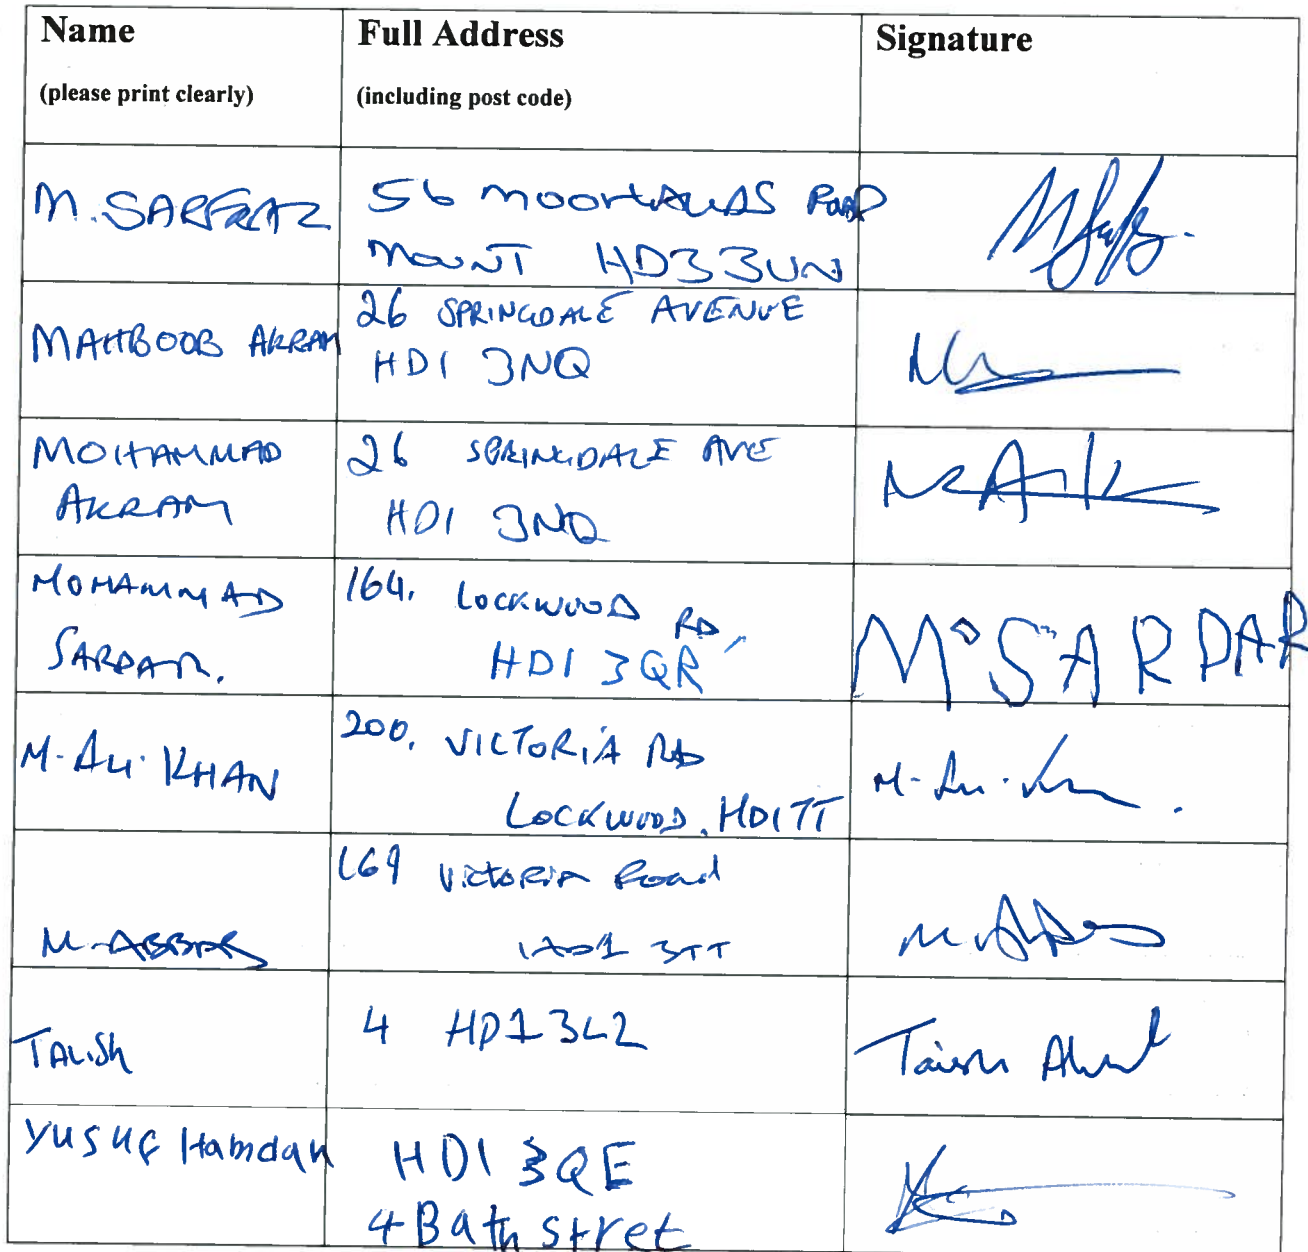 Name
(please print clearly)
Full Address
(including post code)
Signature
M. SARFRAZ
56 MOORLANDS ROAD
MOUNT HD3 3UN
MAHBOOB AKRAM
26 SPRINGDALE AVENUE
HD1 3NQ
MOHAMMAD
AKRAM
26 SPRINGDALE AVE
HD1 3NQ
MOHAMMAD
SARDAR.
164. LOCKWOOD RD,
HD1 3QR
M. SARDAR
M. ALI. KHAN
200. VICTORIA RD
LOCKWOOD, HD1 TT
M. Ali. Khan
M. ABBAS
169 VICTORIA Road
HD1 3TT
M. Abbas
TALISH
4 HD1 3LZ
YUSUF Hamdan
HD1 3QE
4 Bath Stret